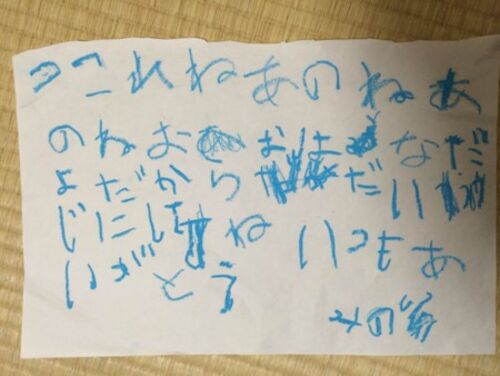 これねあのねあ
のねお おはなだ
よだから だい
じにしてね いつもあ
いがとう